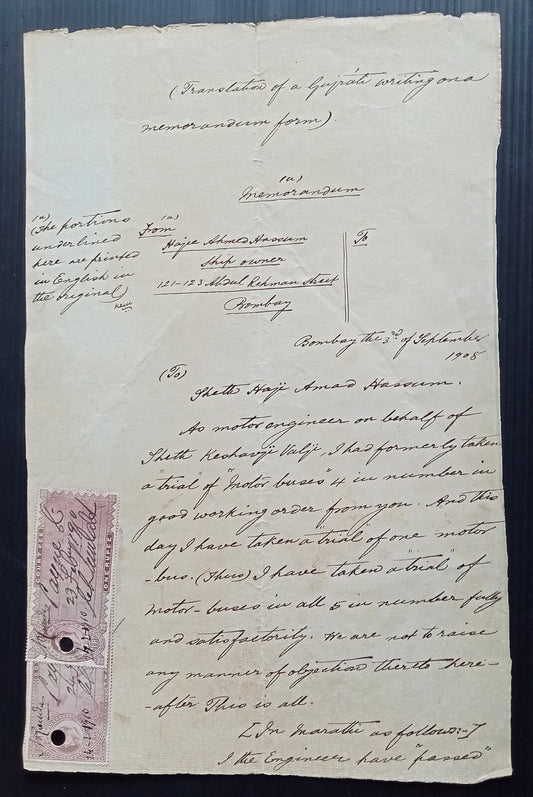 (Translation of a Gujrati writing on a
memorandum form).
(a)
Memorandum
(a)
(The portions
underlined
here are printed
in English in
the original)
(a)
From
Hajee Ahmed Hassum
Ship owner
121-123 Abdul Rehman Street
Bombay
To
Bombay the 3rd of September
1908
(To)
Sheth Haji Amad Hassum.
As motor engineer on behalf of
Sheth Keshavji Valji, I had formerly taken
a "trial" of "Motor buses" 4 in number in
good working order from you. And this
day I have taken a "trial" of one motor
-bus. (Thus) I have taken a "trial" of
motor-buses in all 5 in number fully
and satisfactorily. We are not to raise
any manner of objection thereto here-
-after This is all.
[In Marathi as follows:-]
I the Engineer have "passed"
ONE RUPEE
14-2-1910